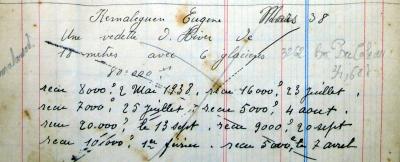 Kemaleguen Eugene Mars 38
Une vedette d'Hiver de
18 metres avec 6 glacieres
80.000
recu 8000, 2 Mai 1938. recu 16000, 23 juillet.
recu 7000, 25 juillet, recu 5000, 4 aout.
recu 20.000, le 13 sept. recu 9000, 20 sept
recu 10.000, 1er fevrier. recu 5000, le 7 avril